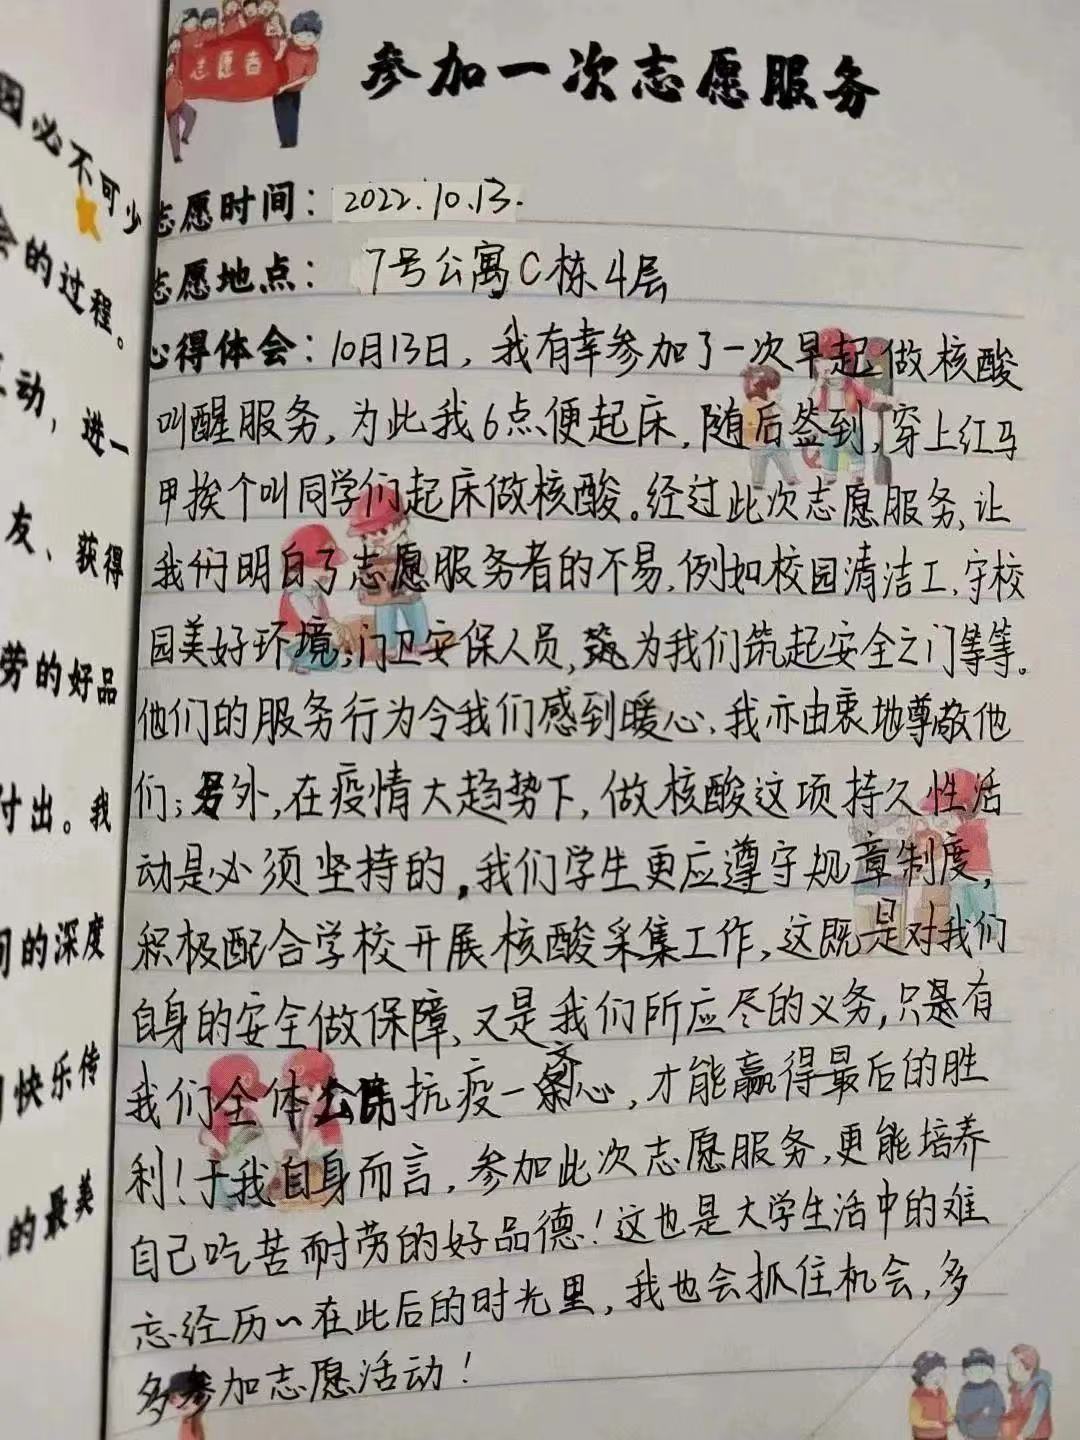 志愿者
参加一次志愿服务
志愿时间：2022.10.13.
志愿地点：7号公寓C栋4层
心得体会：10月13日，我有幸参加了一次早起做核酸
叫醒服务，为此我6点便起床，随后签到，穿上红马
甲挨个叫同学们起床做核酸。经过此次志愿服务，让
我们明白了志愿服务者的不易，例如校园清洁工，守校
园美好环境；门卫安保人员，为我们筑起安全之门等等。
他们的服务行为令我们感到暖心，我亦由衷地尊敬他
们；另外，在疫情大趋势下，做核酸这项持久性活
动是必须坚持的，我们学生更应遵守规章制度，
积极配合学校开展核酸采集工作，这既是对我们
自身的安全做保障，又是我们所应尽的义务，只有
我们全体抗疫一条心，才能赢得最后的胜
利！于我自身而言，参加此次志愿服务，更能培养
自己吃苦耐劳的好品德！这也是大学生活中的难
忘经历~在此后的时光里，我也会抓住机会，多
多参加志愿活动！
必不可少
的过程。
动，进一
友、获得
劳的好品
付出。我
的深度
快乐传
的最美